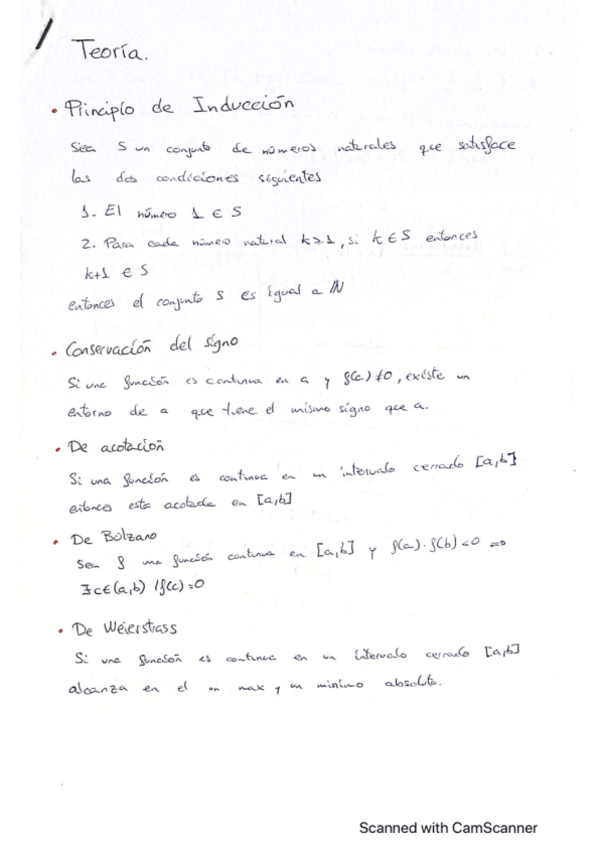 Teoría.
• Principio de Inducción
Sea S un conjunto de números naturales que satisface
las dos condiciones siguientes
1. El número 1 ∈ S
2. Para cada número natural k≥1, si k ∈ S entonces
k+1 ∈ S
entonces el conjunto S es igual a ℕ
• Conservación del signo
Si una función es continua en a y f(c)≠0, existe un
entorno de a que tiene el mismo signo que a.
• De acotación
Si una función es continua en un intervalo cerrado [a,b]
entonces está acotada en [a,b]
• De Bolzano
Sea f una función continua en [a,b] y f(a)·f(b)<0 =>
∃c∈(a,b) /f(c)=0
• De Weierstrass
Si una función es continua en un intervalo cerrado [a,b]
alcanza en el un max y un mínimo absoluto.
Scanned with CamScanner